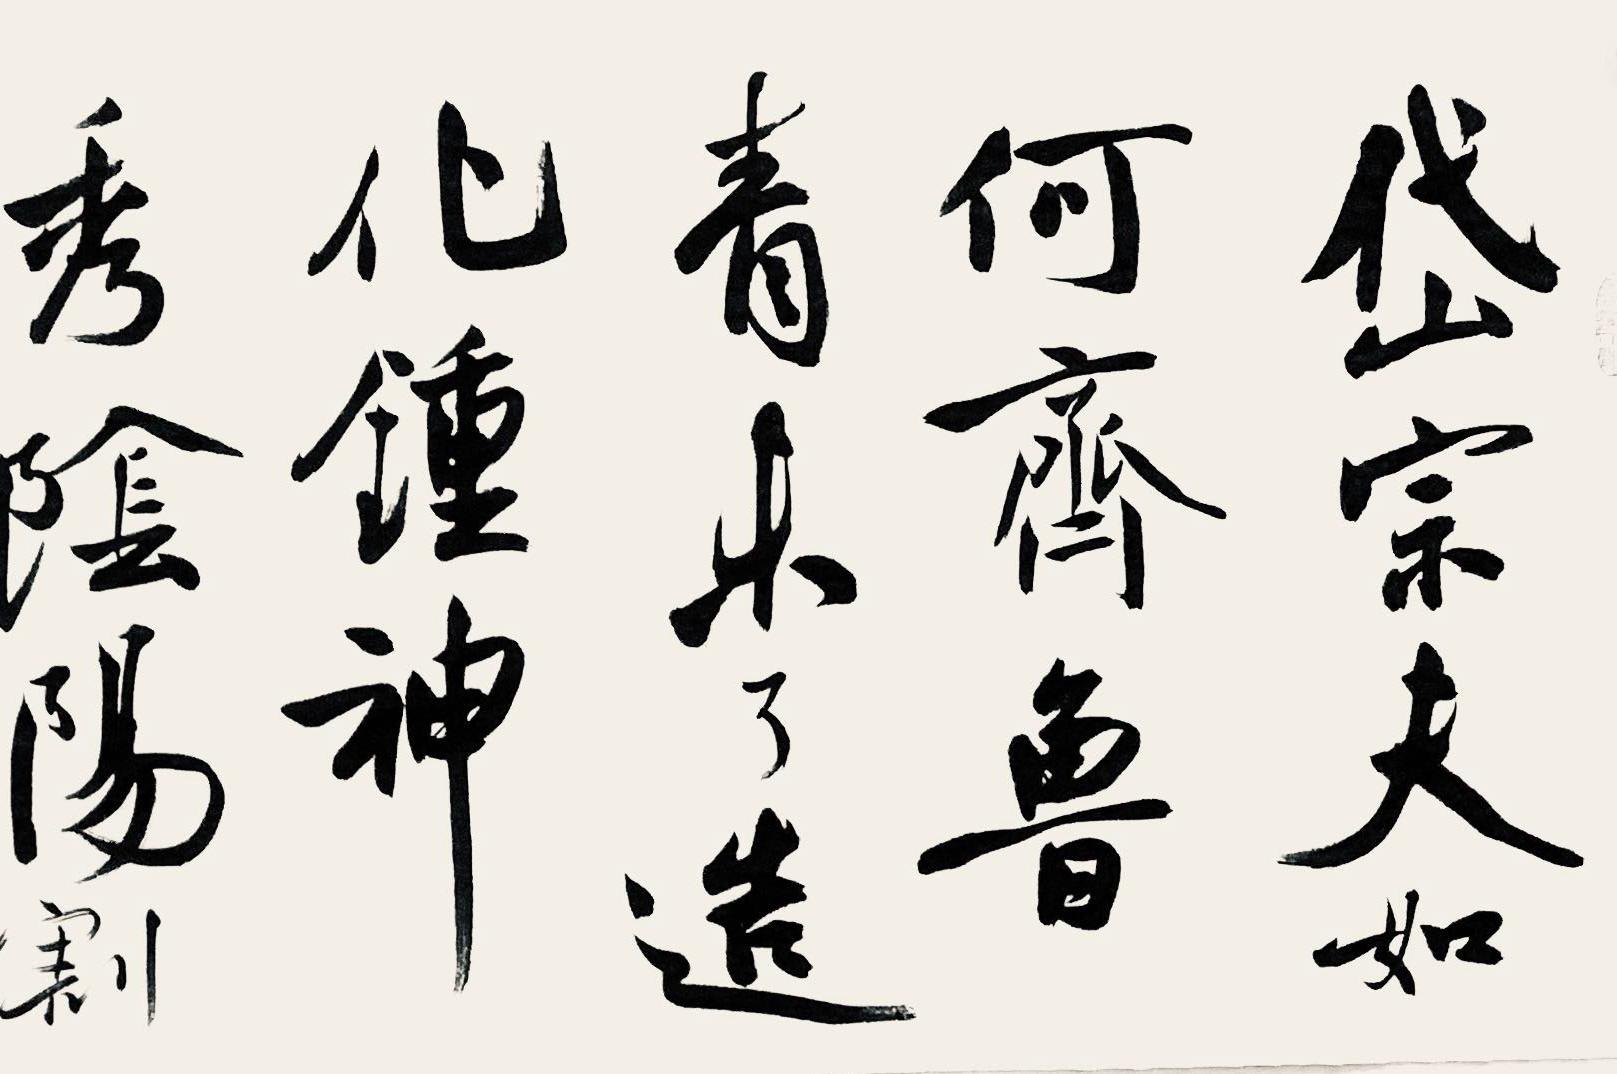 岱宗夫如
何齊魯
青未了造
化鍾神
秀陰陽割